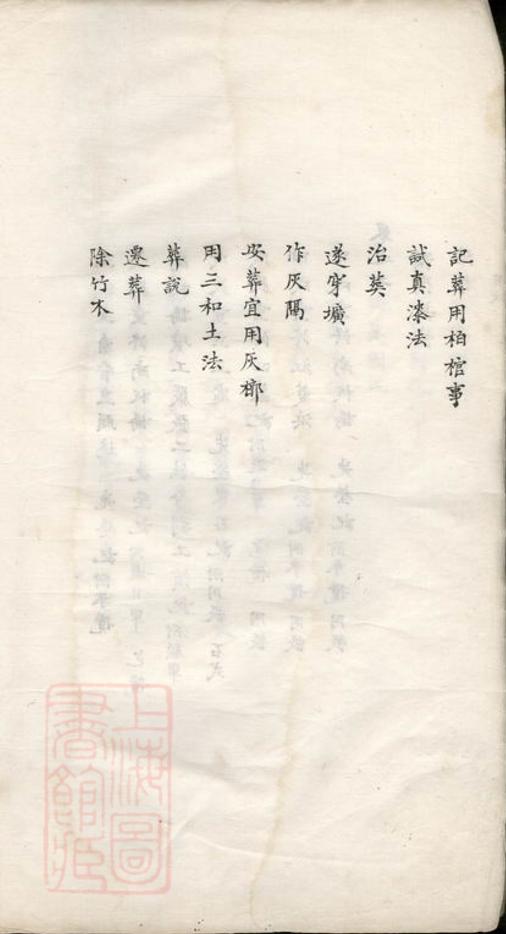 記葬用柏棺事
試真漆法
治葬
遂穿壙
作灰隔
安葬宜用灰槨
用三和土法
葬說
遷葬
除竹木
上海圖書館藏